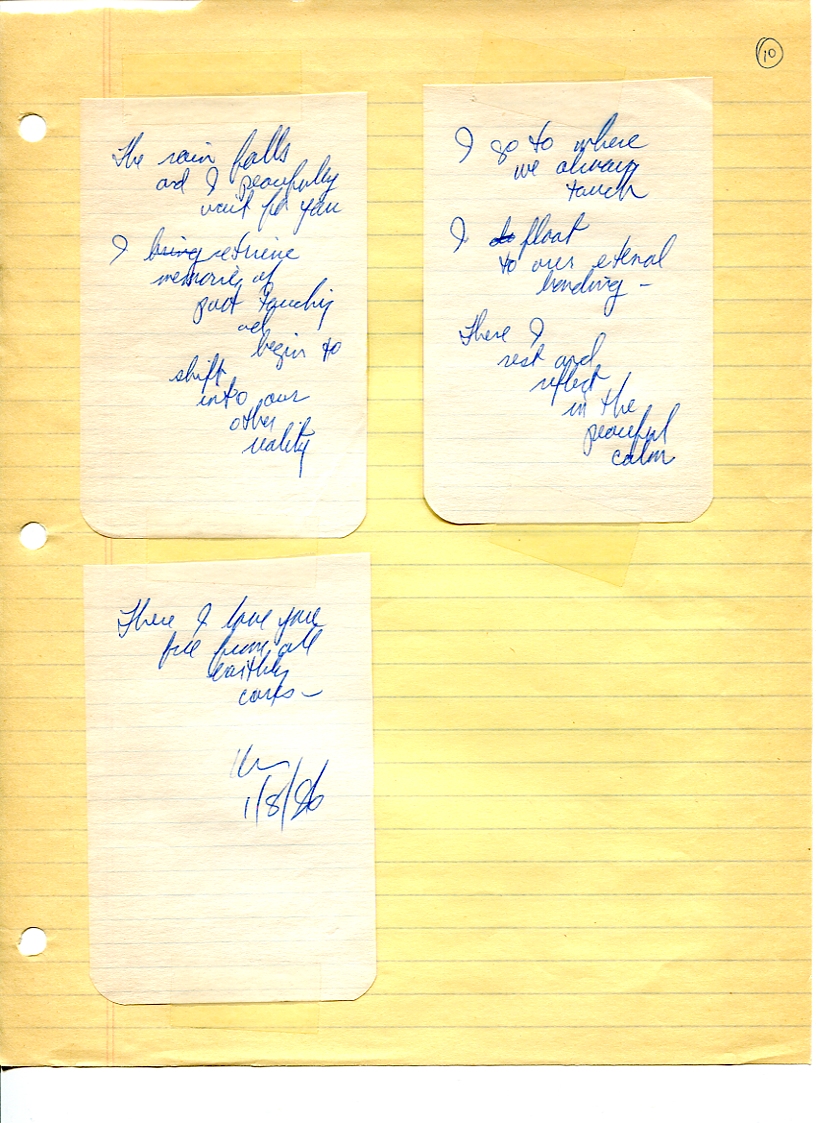 10
The rain falls
and I peacefully
wait for you
I bring retrieve
memories of
past touching
and
begin to
shift
into our
other
reality
I go to where
we always
touch
I do float
to our eternal
bonding –
There I
rest and
reflect
in the
peaceful
calm
There I love you
free from all
earthly
cares –
1/8/86